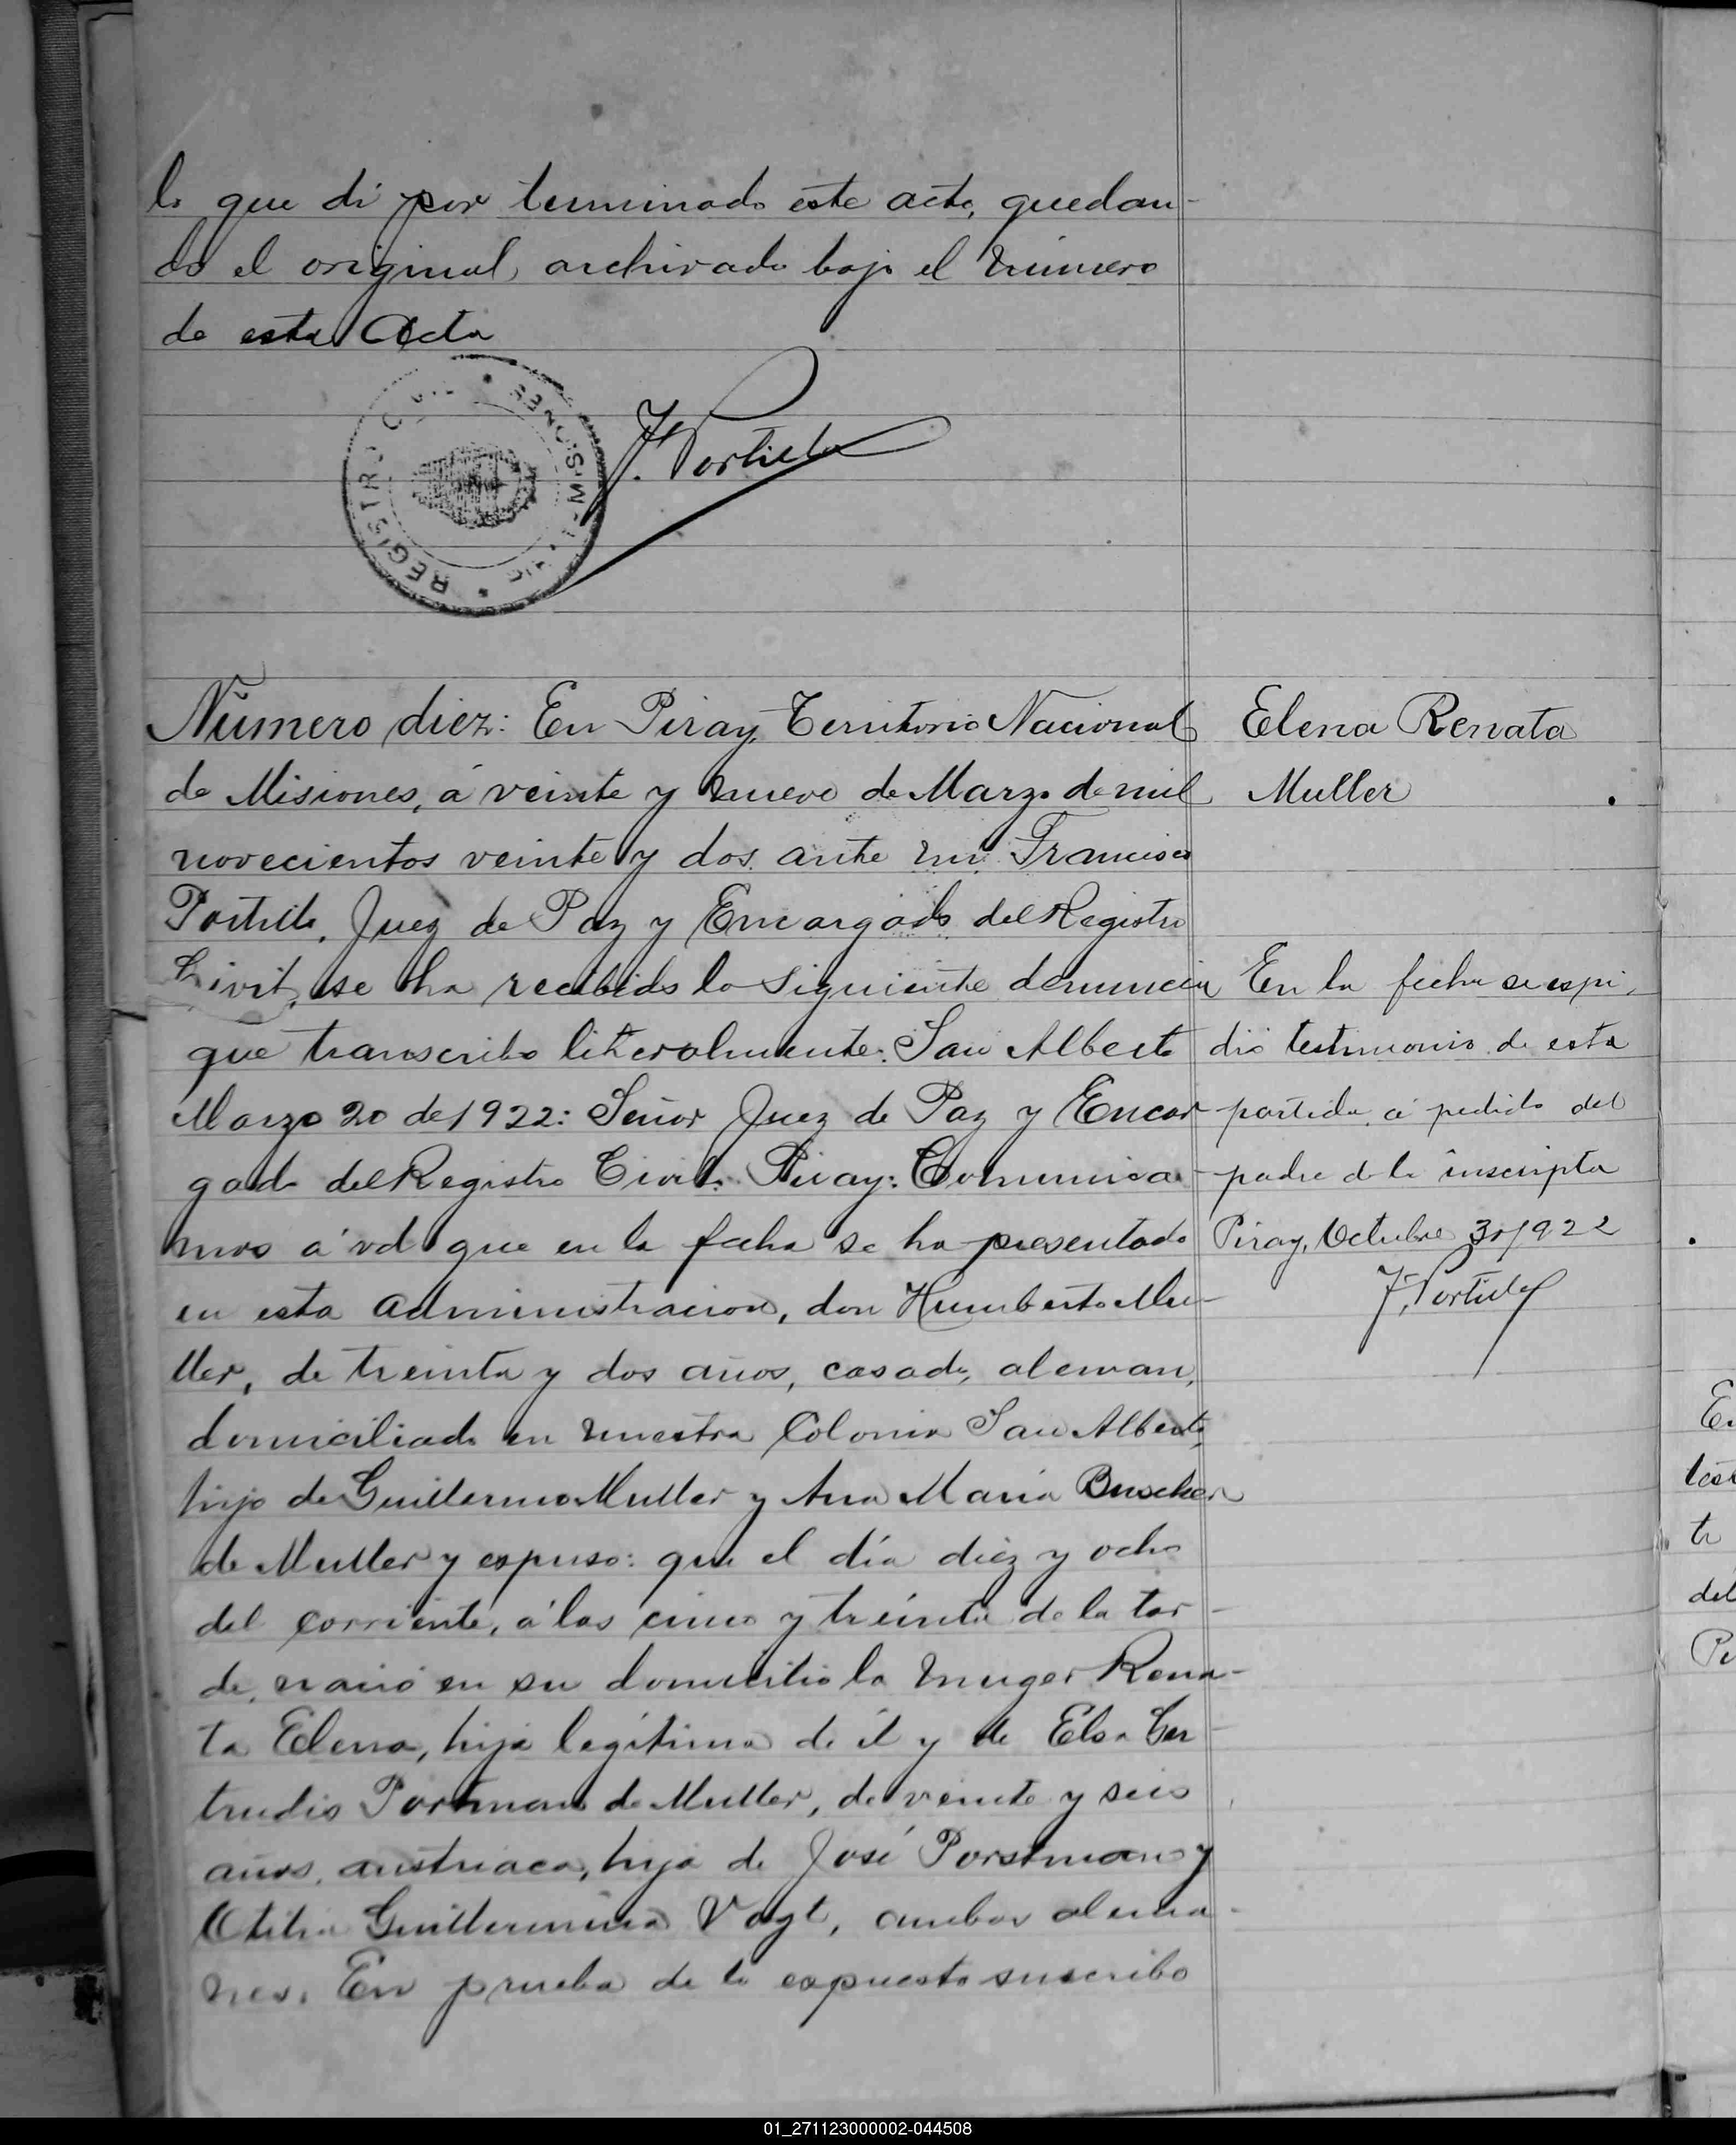 lo que di por terminado este acto, quedan-
do el original archivado bajo el número
de esta Acta
REGISTRO CIVIL
MISIONES
F. Portillo
Número diez: En Piray, Territorio Nacional
de Misiones, á veinte y nueve de Marzo de mil
novecientos veinte y dos, ante mi, Francisco
Portillo, Juez de Paz y Encargado del Registro
Civil, se ha recibido la siguiente denuncia
que transcribo literalmente: San Alberto
Marzo 20 de 1922: Señor Juez de Paz y Encar
gado del Registro Civil. Piray: Comunica-
mos á vd que en la fecha se ha presentado
en esta administracion, don Humberto Mu-
ller, de treinta y dos años, casado, aleman,
domiciliado en nuestra Colonia San Alberto,
hijo de Guillermo Muller y Ana Maria Buscher
de Muller y espuso: que el día diez y ocho
del corriente, á las cinco y treinta de la tar-
de, nació en su domicilio la muger Rena-
ta Elena, hija legítima de él y de Elsa Ger-
trudis Portman de Muller, de veinte y seis
años, austriaca, hija de José Porstman y
Otilia Guillermina Vogt, ambos alema-
nes. En prueba de lo espuesto suscribo
Elena Renata
Muller
En la fecha se espi,
dió testimonio de esta
partida, á pedido del
padre de la inscripta
Piray, Octubre 30/922
F. Portillo
En
tes
tr
del
Pi
01_271123000002-044508